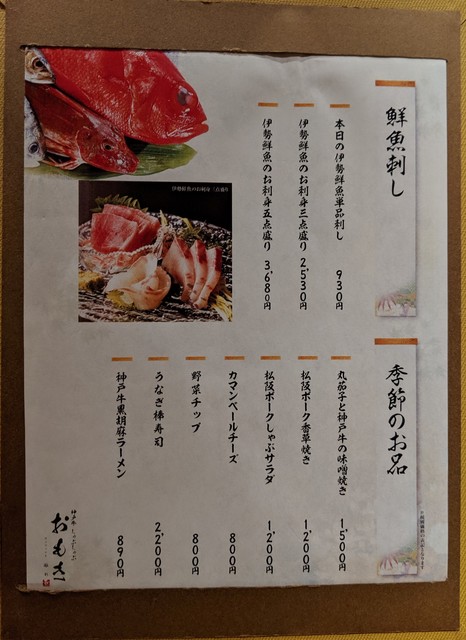 鮮魚刺し
本日の伊勢鮮魚単品刺し 930円
伊勢鮮魚のお刺身三点盛り 2,530円
伊勢鮮魚のお刺身五点盛り 3,680円
伊勢鮮魚のお刺身三点盛り
季節のお品
丸茄子と神戸牛の味噌焼き 1,500円
松阪ポーク香草焼き 1,200円
松阪ポークしゃぶサラダ 1,200円
カマンベールチーズ 800円
野菜チップ 800円
うなぎ棒寿司 2,200円
神戸牛黒胡麻ラーメン 890円
神戸牛・しゃぶしゃぶ
おもき